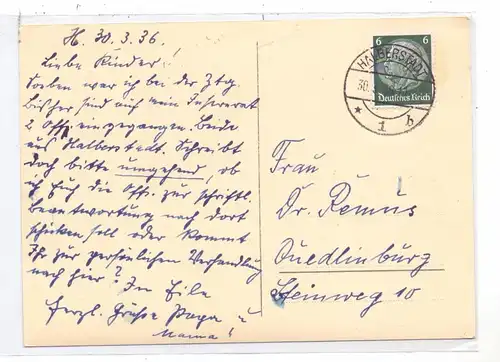 H. 30. 3. 36.
Liebe Kinder!
Soeben war ich bei der Ztg.
Bisher sind auf mein Inserat
2 Off. eingegangen. Beide
aus Halberstadt. Schreibt
doch bitte umgehend, ob
ich Euch die Off. zur schriftl.
Beantwortung nach dort
schicken soll oder kommt
Ihr zur persönlichen Verhandlung
nach hier? In Eile
herzl. Grüße Papa u
Mama!
6 6
Deutsches Reich
HALBERSTADT
30.
* 1 b
Frau
Dr. Remus
Quedlinburg
Steinweg 10